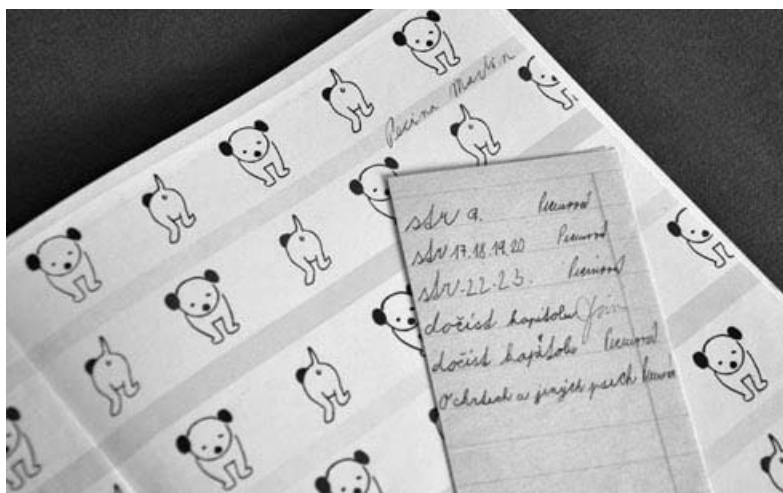 Pecina Martin
str 9. Pecinová
str 17.18.19.20 Pecinová
str. 22-23. Pecinová
dočíst kapitolu
dočíst kapitolu Pecinová
O chrtech a jiných psech Pecinová